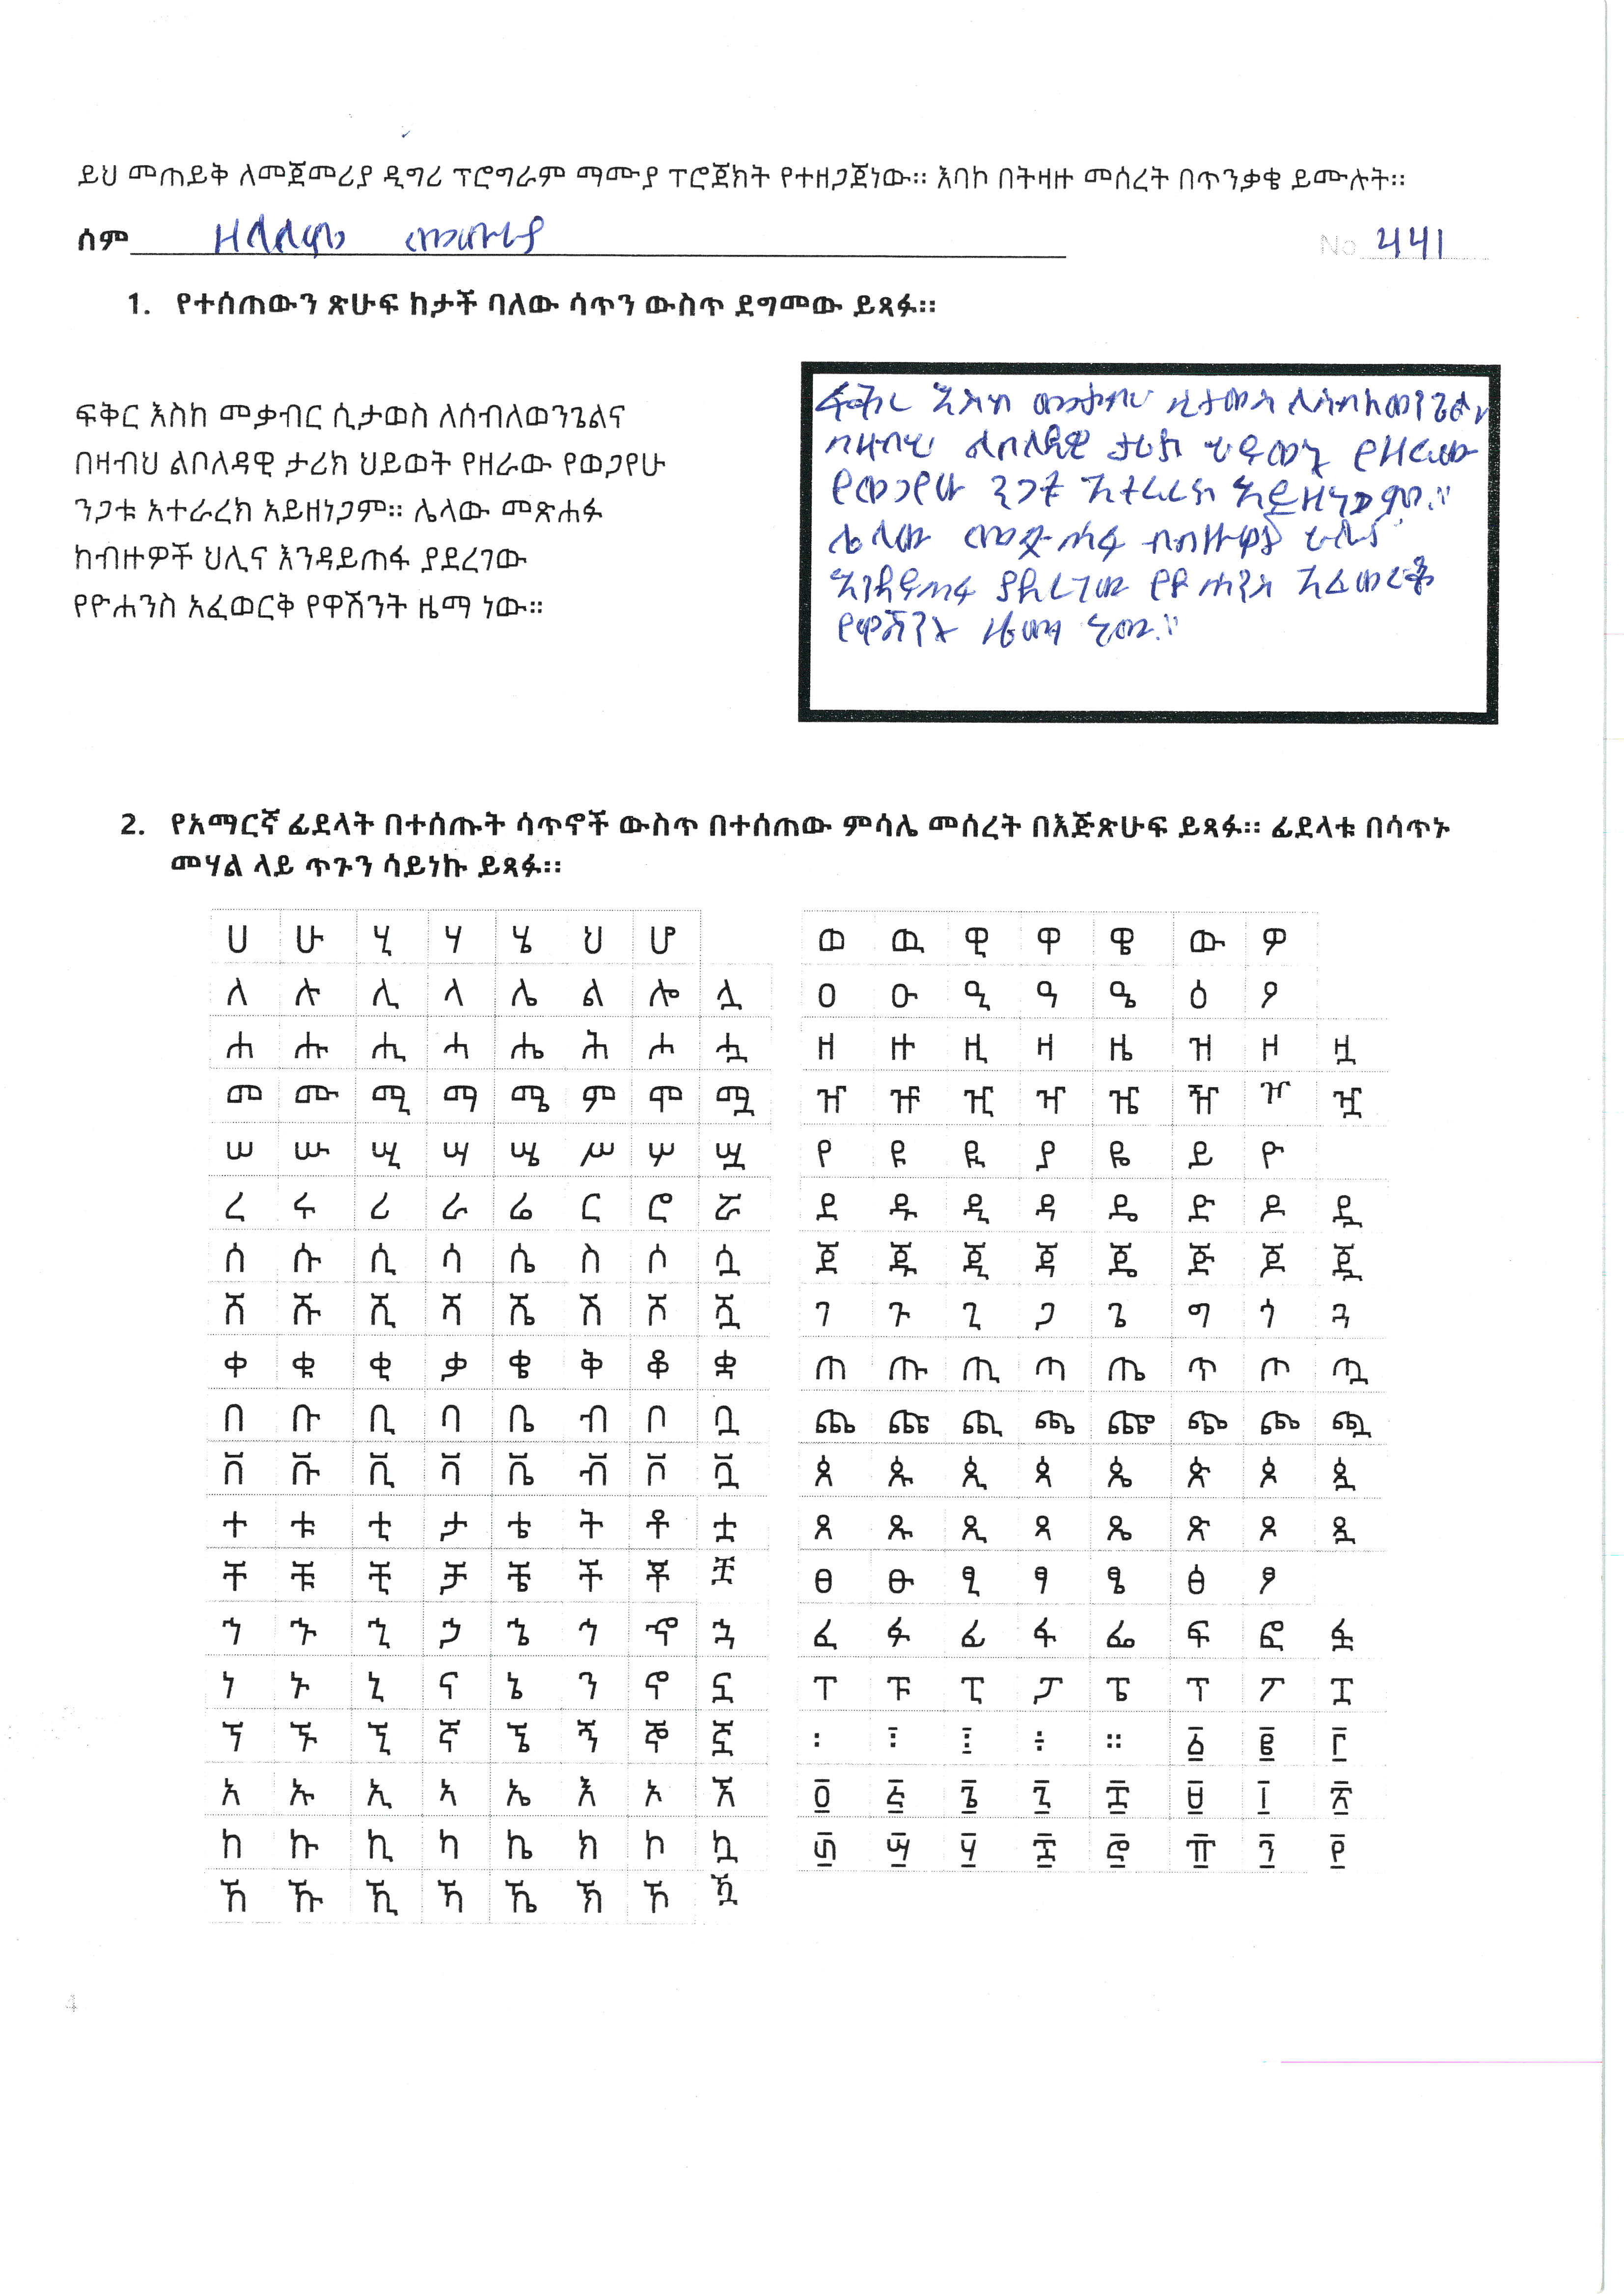 ይህ መጠይቅ ለመጀመሪያ ዲግሪ ፕሮግራም ማሙያ ፕሮጀክት የተዘጋጀነው። እባኮ በትዛዙ መሰረት በጥንቃቄ ይሙሉት።
ሰም
No 441
1. የተሰጠውን ጽሁፍ ከታች ባለው ሳጥን ውስጥ ደግመው ይጻፉ።
ፍቅር እስከ መቃብር ሲታወስ ለሰብለወንጌልና
በዛብህ ልቦለዳዊ ታሪክ ህይወት የዘራው የወጋየሁ
ንጋቱ አተራረክ አይዘነጋም። ሌላው መጽሐፉ
ከብዙዎች ህሊና እንዳይጠፋ ያደረገው
የዮሐንስ አፈወርቅ የዋሽንት ዜማ ነው።
ፍቅር እስከ መቃብር ሲታወስ ለሰብለወንጌልና
በዛብህ ልቦለዳዊ ታሪክ ህይወት የዘራው
የወጋየሁ ንጋቱ አተራረክ አይዘነጋም።
ሌላው መጽሐፉ ከብዙዎች ህሊና
እንዳይጠፋ ያደረገው የዮሐንስ አፈወርቅ
የዋሽንት ዜማ ነው።
2. የአማርኛ ፊደላት በተሰጡት ሳጥኖች ውስጥ በተሰጠው ምሳሌ መሰረት በእጅጽሁፍ ይጻፉ። ፊደላቱ በሳጥኑ
መሃል ላይ ጥጉን ሳይነኩ ይጻፉ።
ሀ ሁ ሂ ሃ ሄ ህ ሆ
ለ ሉ ሊ ላ ሌ ል ሎ ሏ
ሐ ሑ ሒ ሓ ሔ ሕ ሖ ሗ
መ ሙ ሚ ማ ሜ ም ሞ ሟ
ሠ ሡ ሢ ሣ ሤ ሥ ሦ ሧ
ረ ሩ ሪ ራ ሬ ር ሮ ሯ
ሰ ሱ ሲ ሳ ሴ ስ ሶ ሷ
ሸ ሹ ሺ ሻ ሼ ሽ ሾ ሿ
ቀ ቁ ቂ ቃ ቄ ቅ ቆ ቋ
በ ቡ ቢ ባ ቤ ብ ቦ ቧ
ቨ ቩ ቪ ቫ ቬ ቭ ቮ ቯ
ተ ቱ ቲ ታ ቴ ት ቶ ቷ
ቸ ቹ ቺ ቻ ቼ ች ቾ ቿ
ኀ ኁ ኂ ኃ ኄ ኅ ኆ ኋ
ነ ኑ ኒ ና ኔ ን ኖ ኗ
ኘ ኙ ኚ ኛ ኜ ኝ ኞ ኟ
አ ኡ ኢ ኣ ኤ እ ኦ ኧ
ከ ኩ ኪ ካ ኬ ክ ኮ ኳ
ኸ ኹ ኺ ኻ ኼ ኽ ኾ ዃ
ወ ዉ ዊ ዋ ዌ ው ዎ
ዐ ዑ ዒ ዓ ዔ ዕ ዖ
ዘ ዙ ዚ ዛ ዜ ዝ ዞ ዟ
ዠ ዡ ዢ ዣ ዤ ዥ ዦ ዧ
የ ዩ ዪ ያ ዬ ይ ዮ
ደ ዱ ዲ ዳ ዴ ድ ዶ ዷ
ጀ ጁ ጂ ጃ ጄ ጅ ጆ ጇ
ገ ጉ ጊ ጋ ጌ ግ ጎ ጓ
ጠ ጡ ጢ ጣ ጤ ጥ ጦ ጧ
ጨ ጩ ጪ ጫ ጬ ጭ ጮ ጯ
ጰ ጱ ጲ ጳ ጴ ጵ ጶ ጷ
ጸ ጹ ጺ ጻ ጼ ጽ ጾ ጿ
ፀ ፁ ፂ ፃ ፄ ፅ ፆ
ፈ ፉ ፊ ፋ ፌ ፍ ፎ ፏ
ፐ ፑ ፒ ፓ ፔ ፕ ፖ ፗ
፡ ፤ ፧ ፥ ። ፩ ፪ ፫
፬ ፭ ፮ ፯ ፰ ፱ ፲ ፳
፴ ፵ ፶ ፷ ፸ ፹ ፺ ፻
4